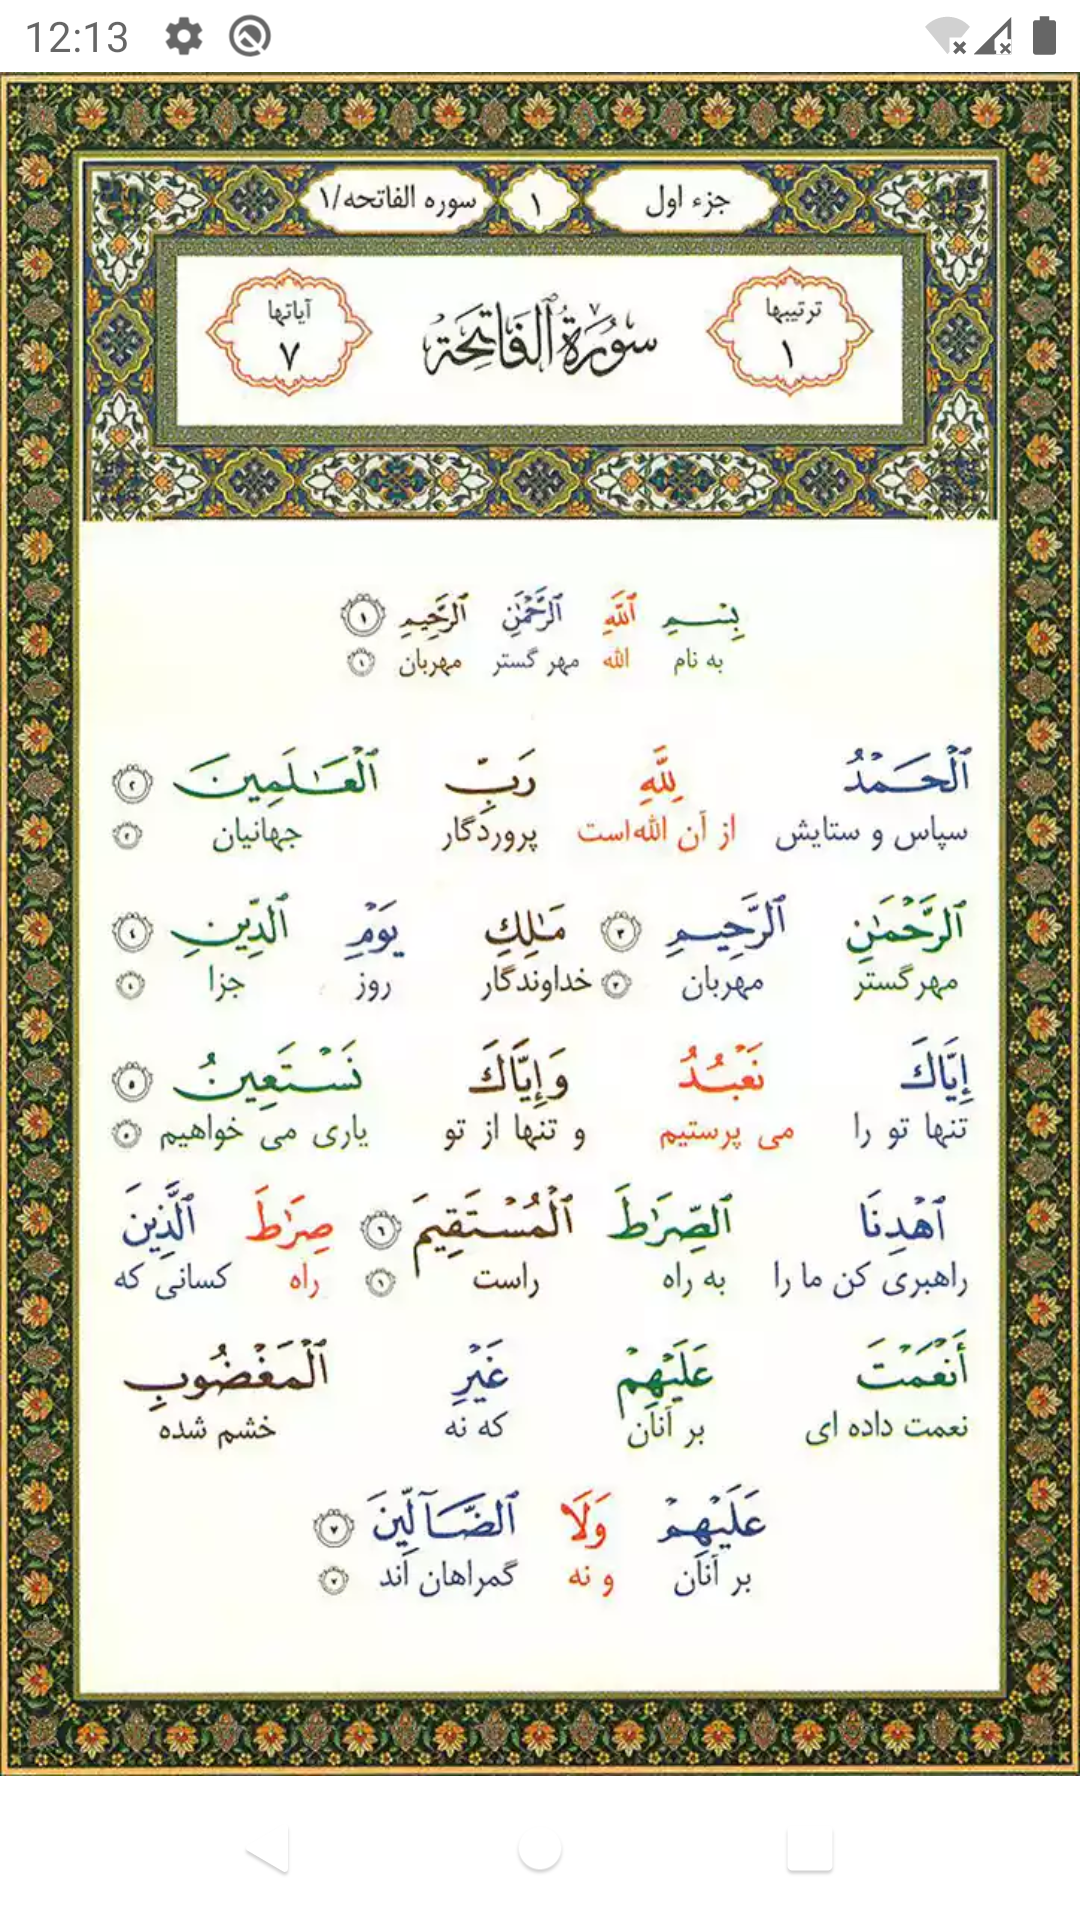 12:13
جزء اول
١
سوره الفاتحه/١
ترتيبها
١
سُورَةُ ٱلْفَاتِحَة
آياتها
٧
بِسْمِ ٱللَّهِ ٱلرَّحْمَٰنِ ٱلرَّحِيمِ ١
به نام الله مهر گستر مهربان ١
ٱلْحَمْدُ لِلَّهِ رَبِّ ٱلْعَـٰلَمِينَ ٢
سپاس و ستایش از آن الله است پروردگار جهانیان ٢
ٱلرَّحْمَٰنِ ٱلرَّحِيمِ ٣ مَـٰلِكِ يَوْمِ ٱلدِّينِ ٤
مهرگستر مهربان ٣ خداوندگار روز جزا ٤
إِيَّاكَ نَعْبُدُ وَإِيَّاكَ نَسْتَعِينُ ٥
تنها تو را می پرستیم و تنها از تو یاری می خواهیم ٥
ٱهْدِنَا ٱلصِّرَٰطَ ٱلْمُسْتَقِيمَ ٦ صِرَٰطَ ٱلَّذِينَ
راهبری کن ما را به راه راست ٦ راه کسانی که
أَنْعَمْتَ عَلَيْهِمْ غَيْرِ ٱلْمَغْضُوبِ
نعمت داده ای بر آنان که نه خشم شده
عَلَيْهِمْ وَلَا ٱلضَّآلِّينَ ٧
بر آنان و نه گمراهان اند ٧